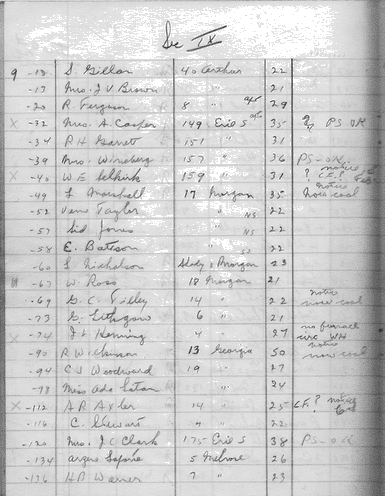 Sec IX
9 -18 S. Gillan 40 Arthur 22
-19 Mrs. J V Brown " 21
-20 R. Ferguson 8 " apt 29
X -32 Mrs. A Casper 149 Erie S apt 35 ? PS OK
-34 R H Garrett 151 " 31
-39 Mrs. Winsberg 157 " 36 PS-OK
X -40 W E Selkirk 159 " 31 ? C.F.? notice
-49 L Marshall 17 Morgan 35 notice new coal
-52 Taylor " NS 22
-57 Sid Jones " NS 22
-58 E. Bateson " 22
-60 L Nicholson & Morgan 23
-67 W Ross 18 Morgan 21
-69 G. C. 14 " 22 notice new coal
-73 G. Lithgow 6 " 21
X -74 J. 4 " 27 no furnace WH
-90 R Wilkinson 13 Georgia 50 notice new coal
-94 C S Woodward 19 " 27
-98 Miss Ada " 24
X -112 A R 14 " 25 C.F.? notice
-116 C. Stewart " 22
-120 Mrs. J C Clark 175 Erie S 38 PS-OK
-134 5 Melrose 26
-136 H P Warner 7 " 23